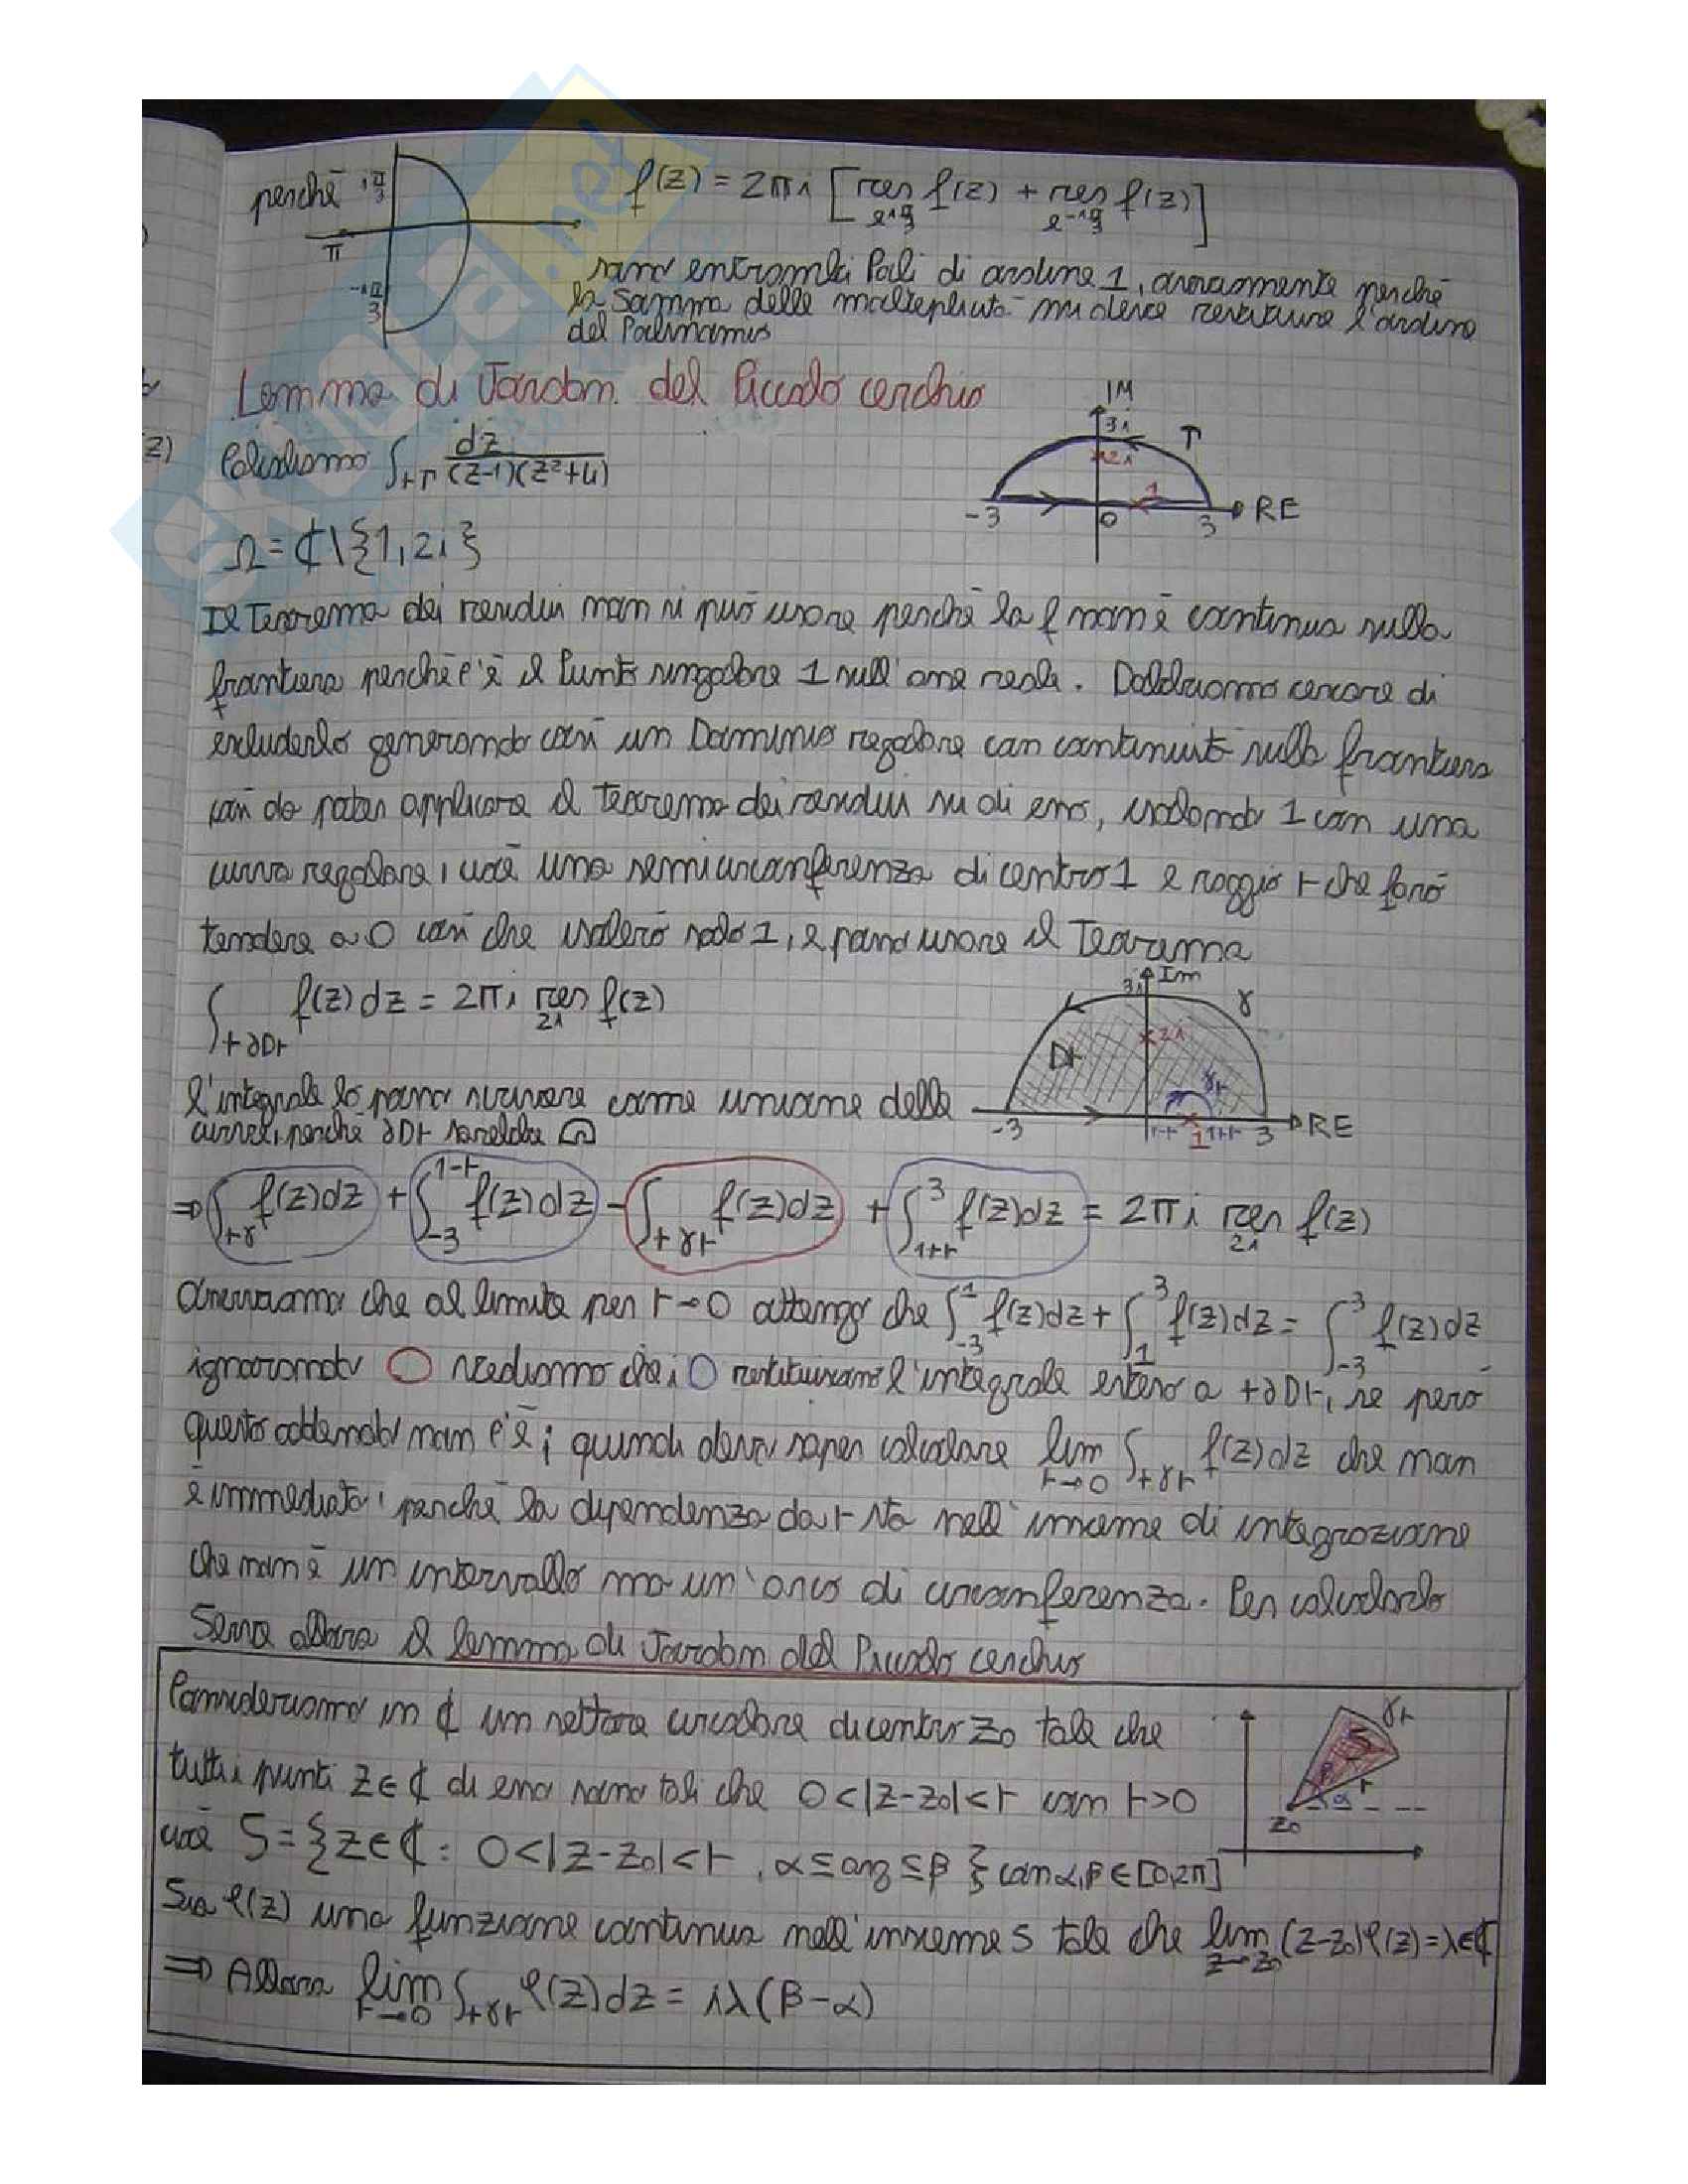 perchè i π/3 f(z) = 2πi [res f(z) + res f(z)]
e^iπ/3 e^-iπ/3
π
-i π/3
sono entrambi Poli di ordine 1, ovviamente perchè
la somma delle molteplicità mi deve restituire l'ordine
del Polinomio
Lemma di Jordan del Piccolo cerchio
Calcoliamo ∫+Γ dz/((z-1)(z²+4))
IM
3i
Γ
2i
1
-3 0 3 RE
Ω = ₵\{1, 2i}
Il Teorema dei residui non si può usare perchè la f non è continua sulla
frontiera perchè c'è il Punto singolare 1 sull'asse reale. Dobbiamo cercare di
escluderlo generando così un Dominio regolare con continuità sulla frontiera
così da poter applicare il teorema dei residui su di esso, isolando 1 con una
curva regolare, cioè una semicirconferenza di centro 1 e raggio r che farò
tendere a 0 così che isolerò solo 1, e posso usare il Teorema
∫+∂Dr f(z)dz = 2πi res f(z)
2i
3i Im
γ
2i
Dr
γr
-3 1-r 1 1+r 3 RE
l'integrale lo posso scrivere come unione delle
curve, perchè ∂Dr sarebbe
⇒ ∫+γ f(z)dz + ∫-3^1-r f(z)dz - ∫+γr f(z)dz + ∫1+r^3 f(z)dz = 2πi res f(z)
2i
Osserviamo che al limite per r→0 ottengo che ∫-3^1 f(z)dz + ∫1^3 f(z)dz = ∫-3^3 f(z)dz
ignorando O vediamo che i O restituiscono l'integrale esteso a +∂Dr, se però
questo addendo non c'è; quindi devo saper calcolare lim r→0 ∫+γr f(z)dz che non
è immediato, perchè la dipendenza da r sta nell'insieme di integrazione
che non è un intervallo ma un'arco di circonferenza. Per calcolarlo
Serve allora il lemma di Jordan del Piccolo cerchio
Consideriamo in ₵ un settore circolare di centro z₀ tale che
tutti i punti z∈₵ di esso sono tali che 0<|z-z₀|<r con r>0
cioè S={z∈₵: 0<|z-z₀|<r, α≤arg≤β} con α,β∈[0,2π]
γr
S
β
r
α
z₀
Sia φ(z) una funzione continua nell'insieme S tale che lim z→z₀ (z-z₀)φ(z)=λ∈₵
⇒ Allora lim r→0 ∫+γr φ(z)dz = iλ(β-α)